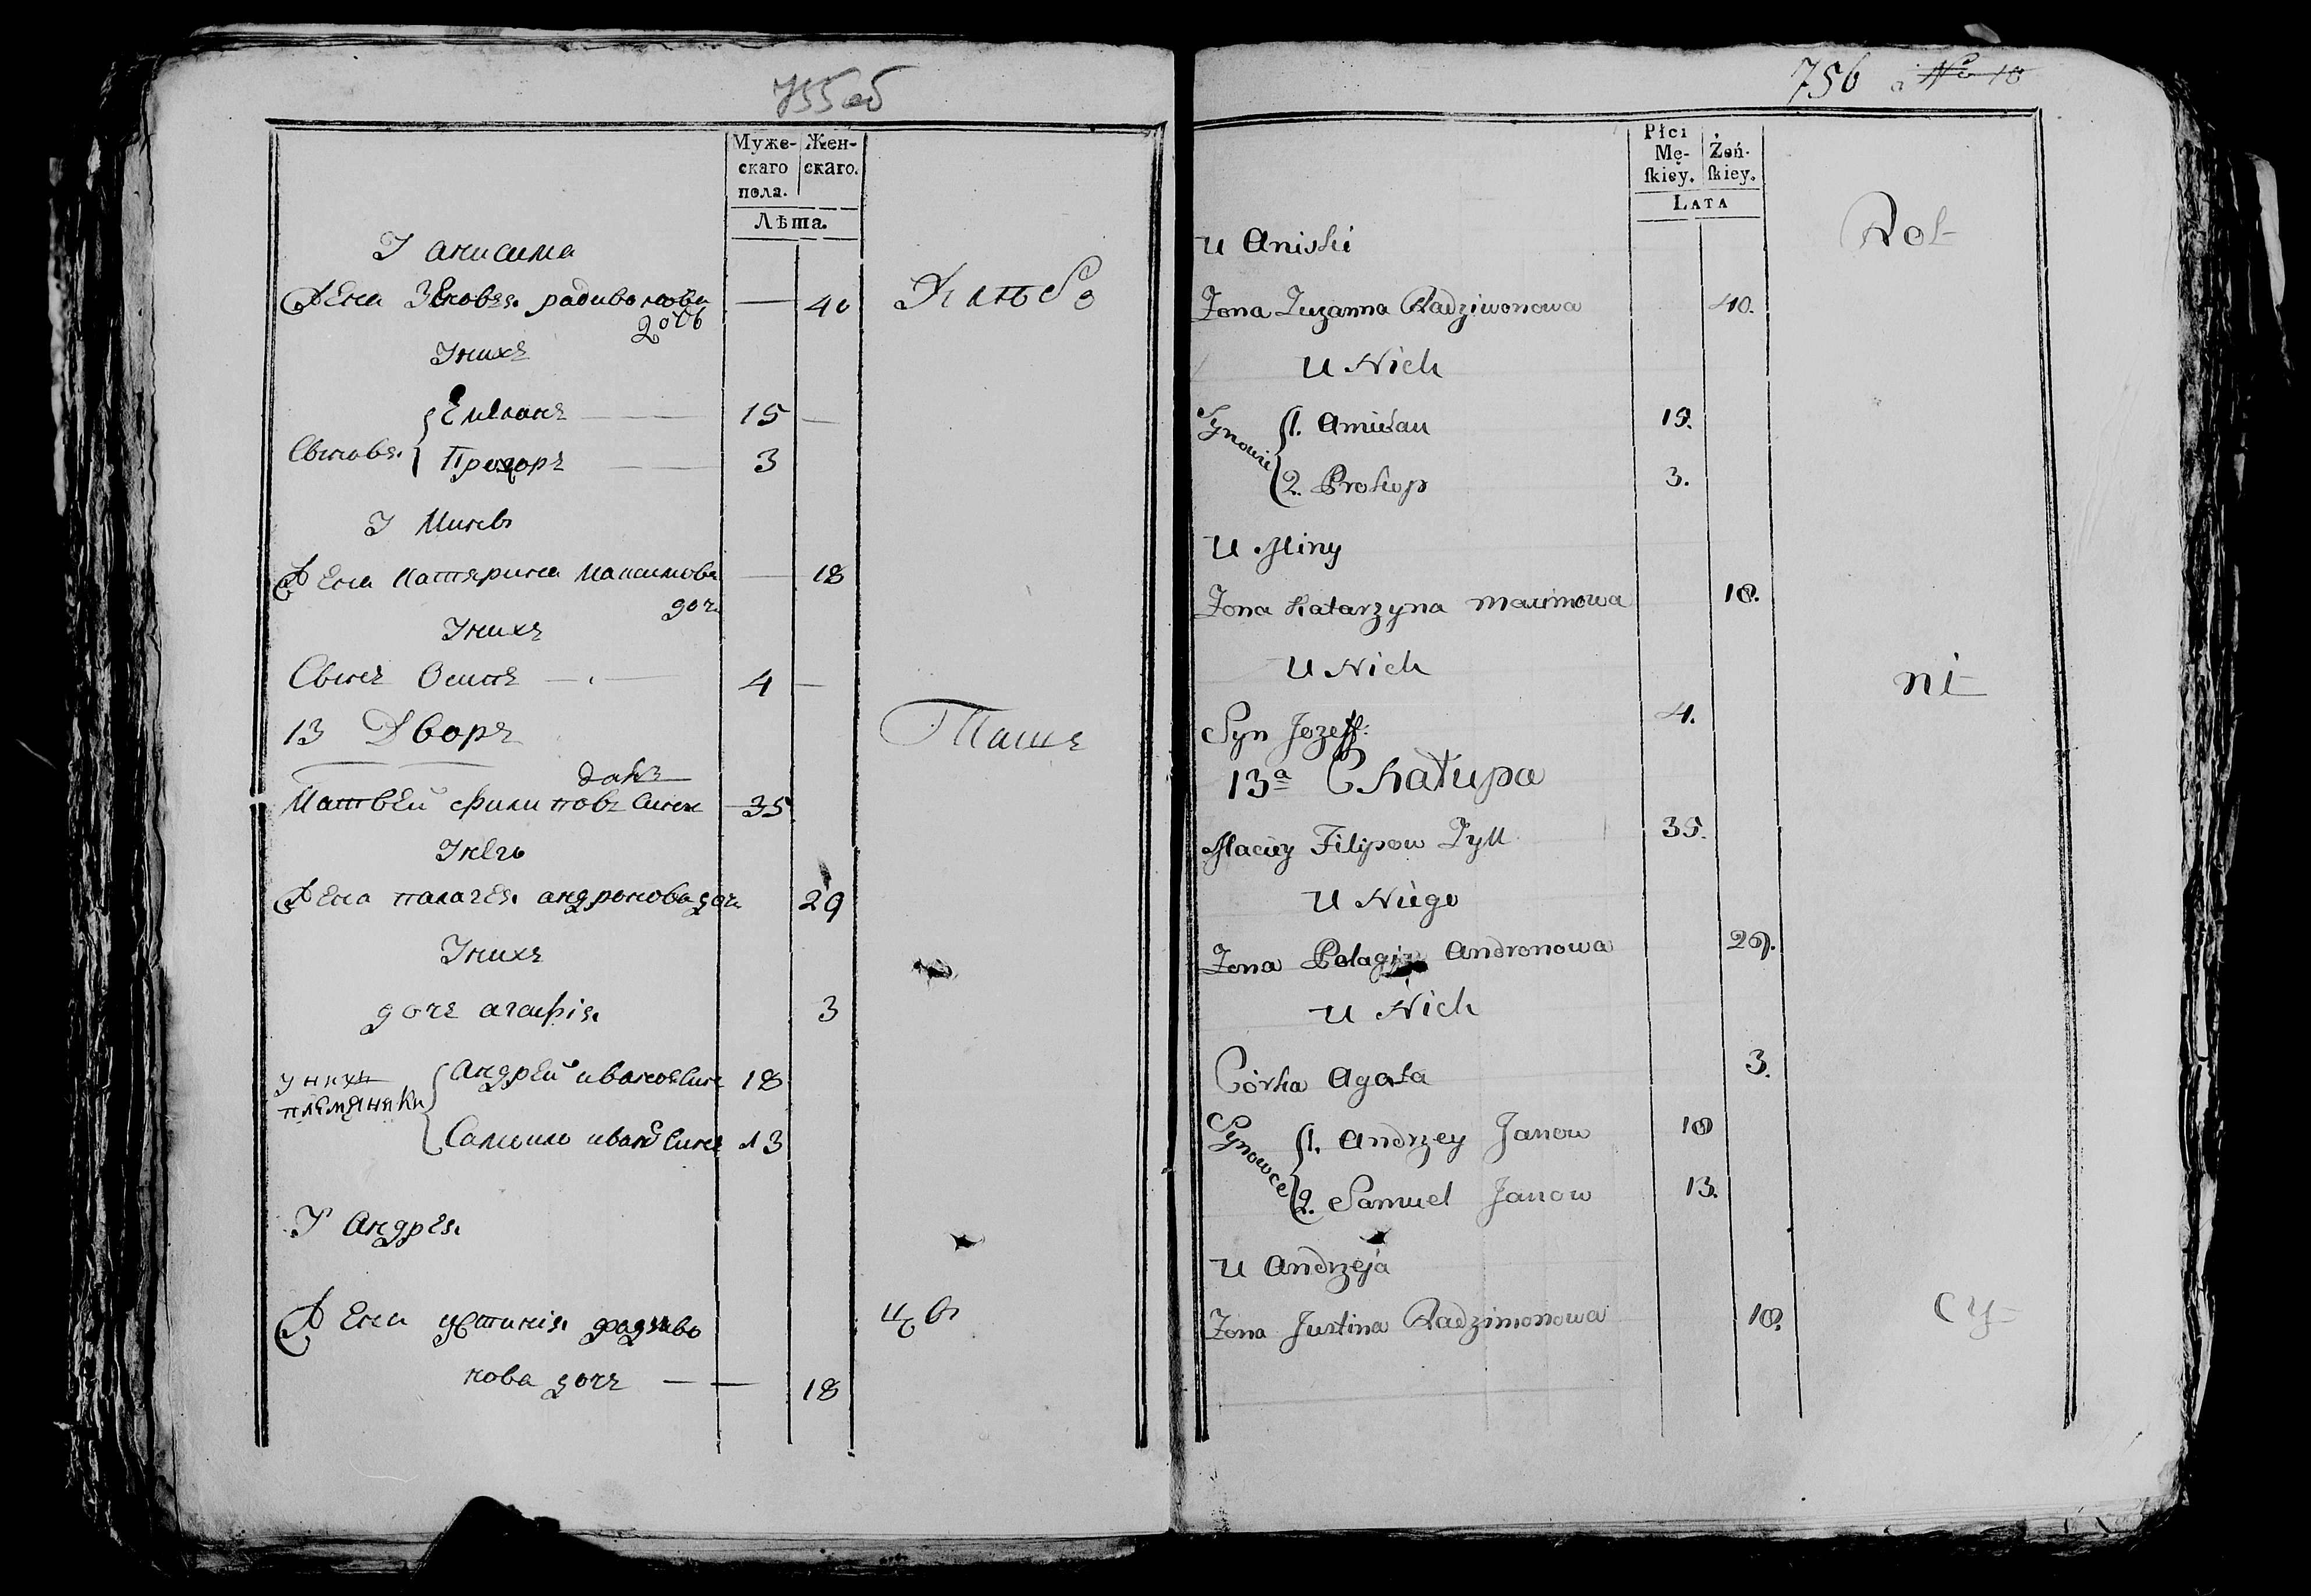 755об
Муже-
скаго
пола.
Жен-
скаго.
Лѣта.
У анисима
Жена Зѣновья радивонова 40
дочь
Унихъ
Сыновья
Емелянъ 15
Прокоръ 3
У Минѣ
Жена Катярина Максимова 18
доч
Унихъ
Сынъ Осипъ 4
13 Дворъ
Матвей филиповъ сынъ 35
Унего
Жена палагея андронова доч 29
Унихъ
дочь агафія 3
у нихъ
племяники
Андрей ивановъ сынъ 18
Самоило иванов сынъ 13
У Андрея
Жена устинія радзиво
нова дочь 18
756 a No 10
Płci
Mę-
ſkiey.
Żeń-
ſkiey.
LATA
U Aniski
Rol-
Zona Zuzanna Radziwonowa 40.
U Nich
Synowie
1. Amilian 15.
2. Prokop 3.
U Miny
Zona Katarzyna Maximowa 18.
U Nich
ni-
Syn Jozeff: 4.
13a Chałupa
Maciey Filipow Zyll 35.
U Niego
Zona Polagia Andronowa 29.
U Nich
Córka Agata 3.
Synowce
1. Andrzey Janow 18
2. Samuel Janow 13.
U Andrzeja
Zona Justina Radzimonowa 18.
cy-